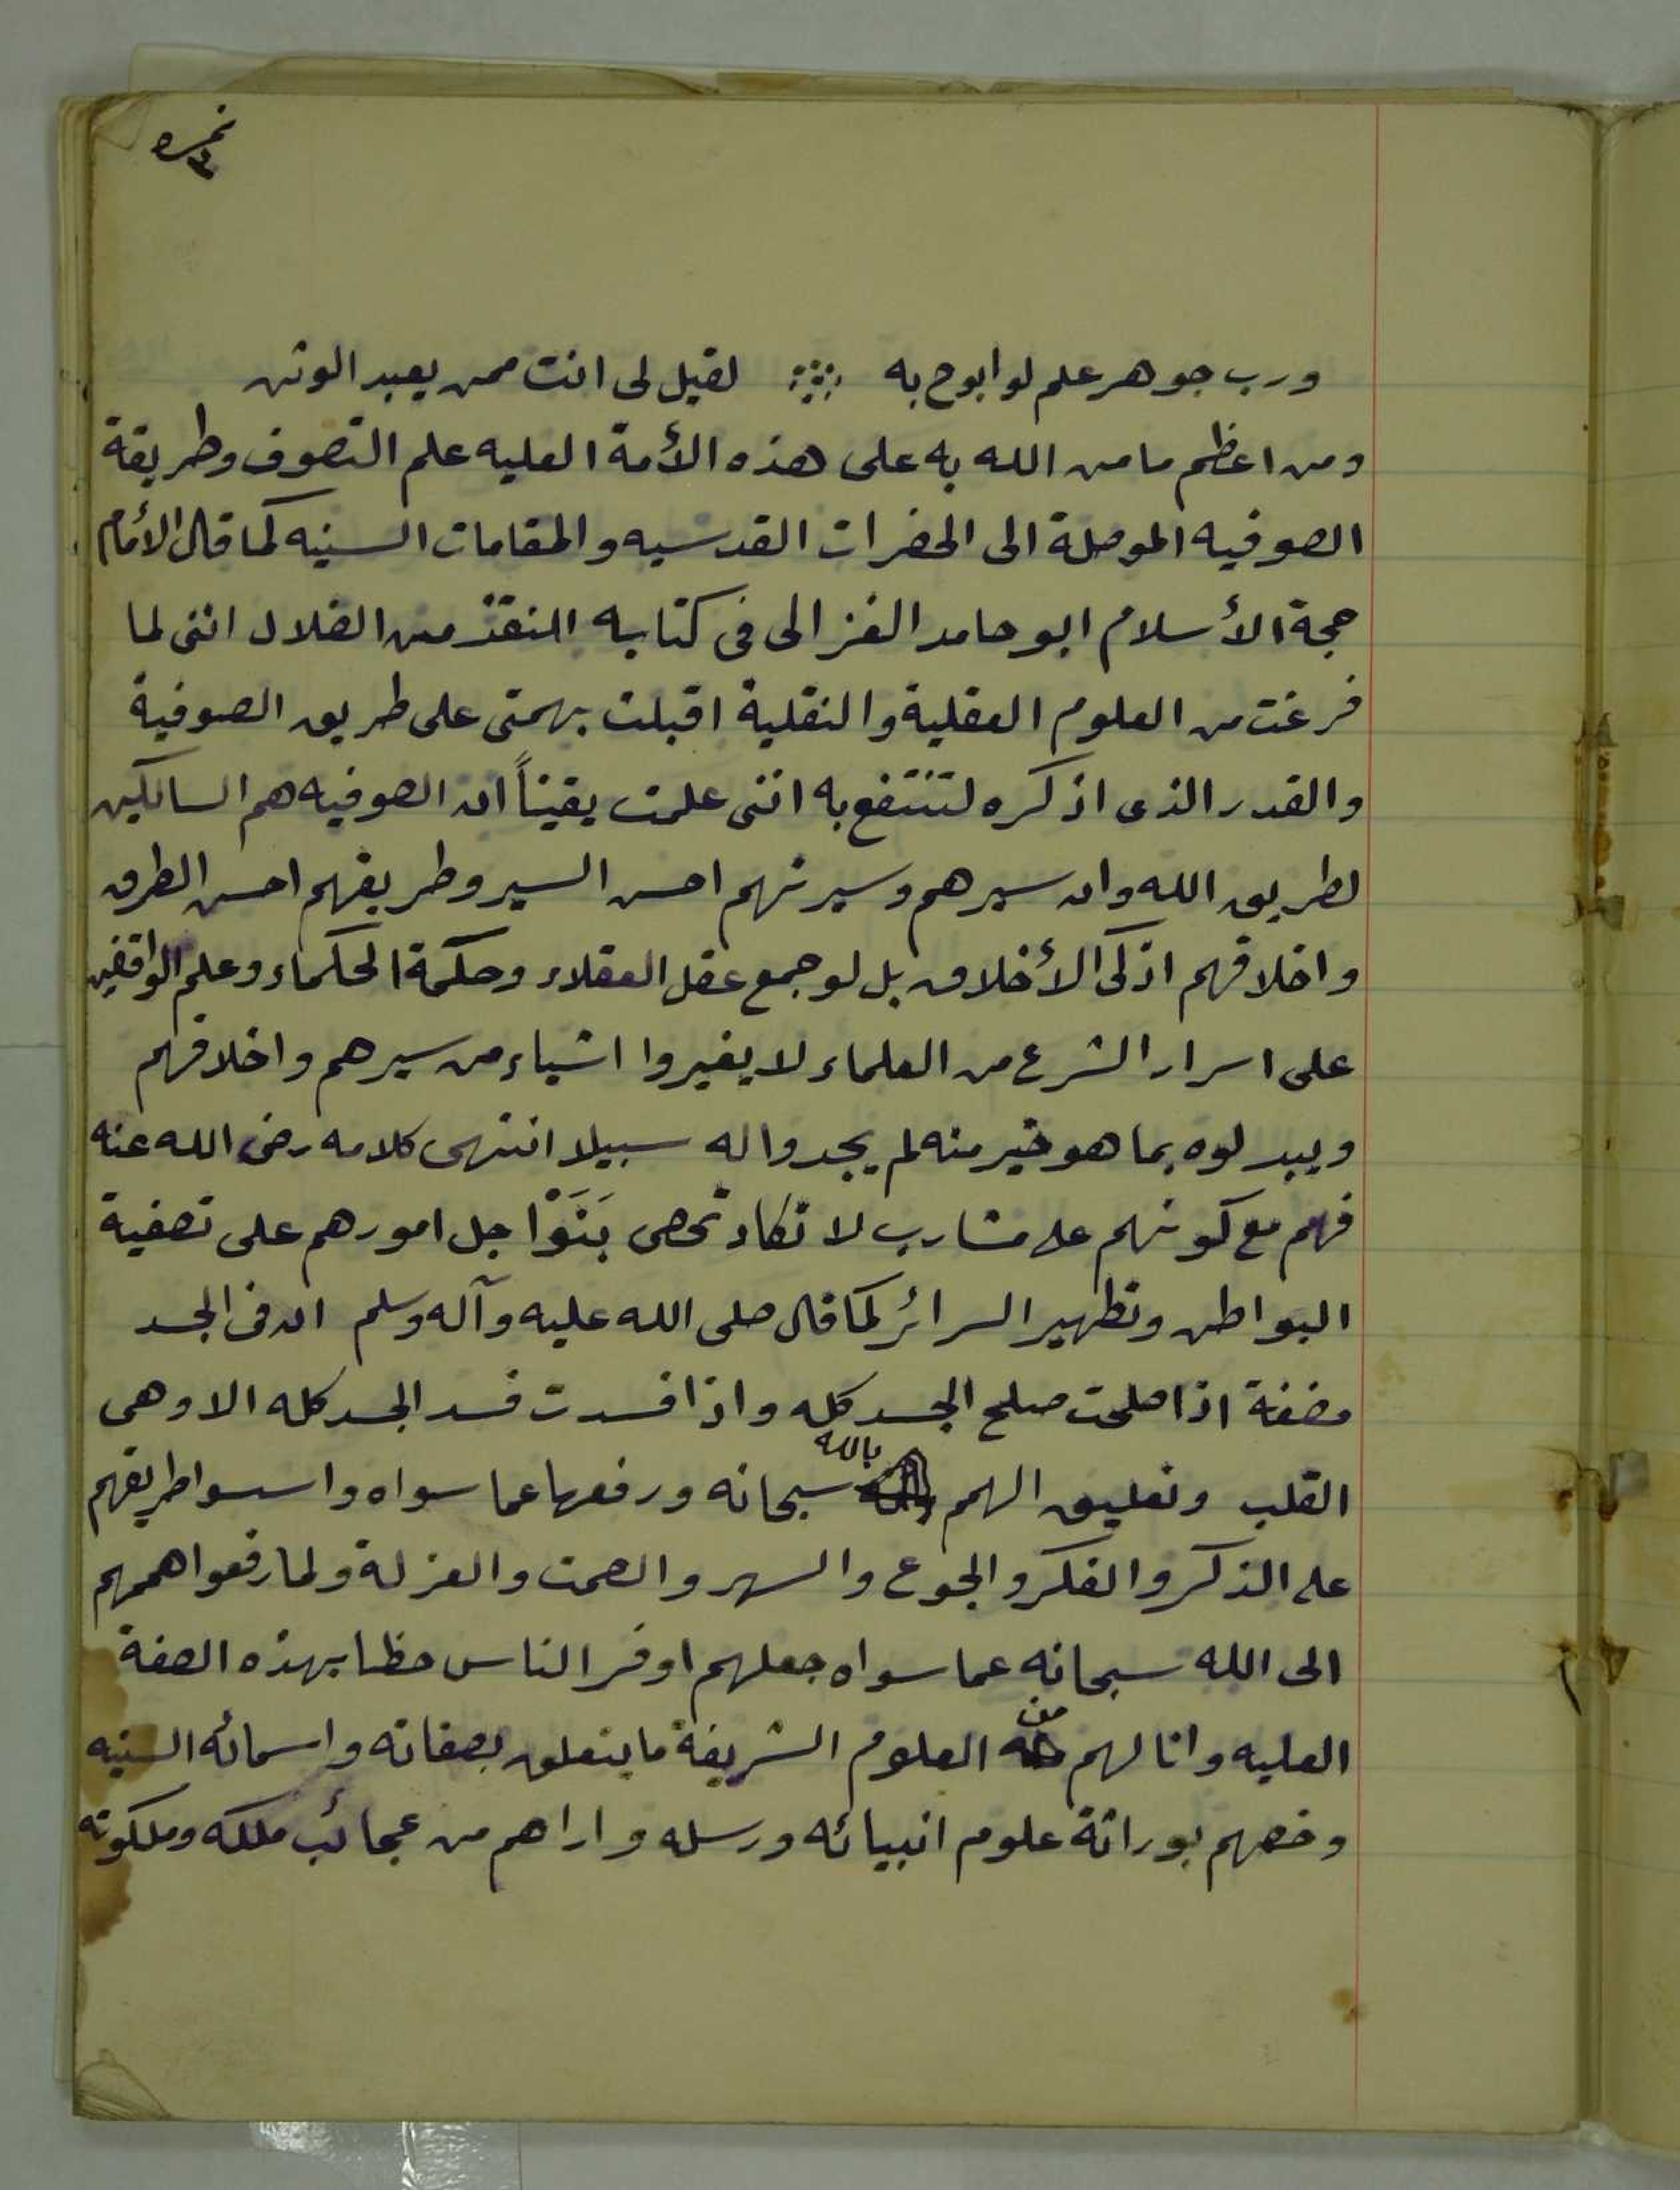 نمره ٣
ورب جوهر علم لو ابوح به ∴ لقيل لى انت ممن يعبد الوثن
ومن اعظم ما من الله به على هذه الأمة العليه علم التصوف وطريقة
الصوفيه الموصلة الى الحضرات القدسيه والمقامات السنيه كما قال الأمام
حجة الأسلام ابو حامد الغزالى فى كتابه المنقذ من الضلال اننى لما
فرغت من العلوم العقلية والنقلية اقبلت بهمتى على طريق الصوفية
والقدر الذى اذكره لتنتفع به اننى علمت يقيناً ان الصوفيه هم السالكين
لطريق الله وان سيرهم وسيرتهم احسن السير وطريقهم احسن الطرق
واخلاقهم اذكى الأخلاق بل لو جمع عقل العقلاء وحكمة الحكماء وعلم الواقفين
على اسرار الشرع من العلماء لا يغيروا اشياء من سيرهم واخلاقهم
ويبدلوه بما هو خير منه لم يجدوا له سبيلا انتهى كلامه رضى الله عنه
فهم مع كونهم على مشارب لا تكاد تحصى بَنَوْا جل امورهم على تصفية
البواطن وتطهير السرائر كما قال صلى الله عليه وآله وسلم ان فى الجسد
مضغة اذا صلحت صلح الجسد كله واذا فسدت فسد الجسد كله الا وهى
القلب وتعليق الهمم بالله سبحانه ورفعها عما سواه واسسوا طريقهم
على الذكر والفكر والجوع والسهر والصمت والعزلة ولما رفعوا هممهم
الى الله سبحانه عما سواه جعلهم اوفر الناس حظا بهذه الصفة
العليه وانالهم من العلوم الشريفة ما يتعلق بصفاته واسمائه السنيه
وخصهم بوراثة علوم انبيائه ورسله واراهم من عجائب ملكه وملكوته